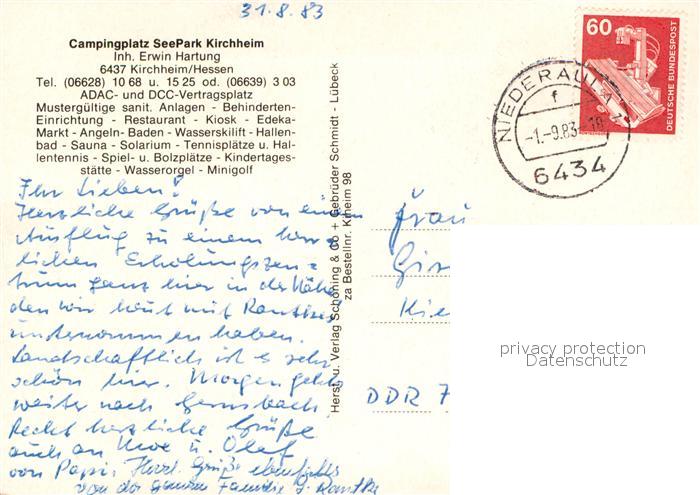 31.8.83
Campingplatz SeePark Kirchheim
Inh. Erwin Hartung
6437 Kirchheim/Hessen
Tel. (06628) 10 68 u. 15 25 od. (06639) 3 03
ADAC- und DCC-Vertragsplatz
Mustergültige sanit. Anlagen - Behinderten-
Einrichtung - Restaurant - Kiosk - Edeka-
Markt - Angeln- Baden - Wasserskilift - Hallen-
bad - Sauna - Solarium - Tennisplätze u. Hal-
lentennis - Spiel- u. Bolzplätze - Kindertages-
stätte - Wasserorgel - Minigolf
Ihr Lieben!
Herzliche Grüße von einem
Ausflug zu einem herr-
lichen Erholungszen-
trum ganz hier in der Nähe
den wir heut mit
unternommen haben.
Landschaftlich ist es sehr
schön hier. Morgen geht
weiter nach Gernsbach
Recht herzliche Grüße
auch an Uwe u. Olaf
von Papi. Herzl. Grüße ebenfalls
von der ganzen Familie
Herst. u. Verlag Schöning & Co + Gebrüder Schmidt - Lübeck
za Bestellnr. Kirheim 98
60
DEUTSCHE BUNDESPOST
NIEDERAULA 1
f
-1.-9.83-18
6434
Frau
DDR 7
privacy protection
Datenschutz